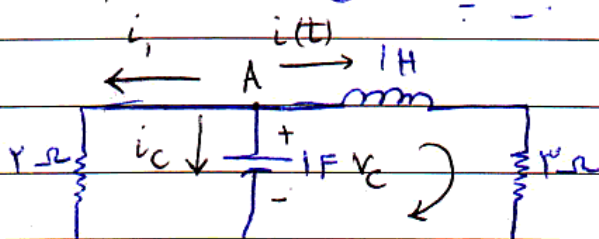 i₁ i(t)
A 1H
۲ Ω i_C + 1F v_C ۳ Ω
-